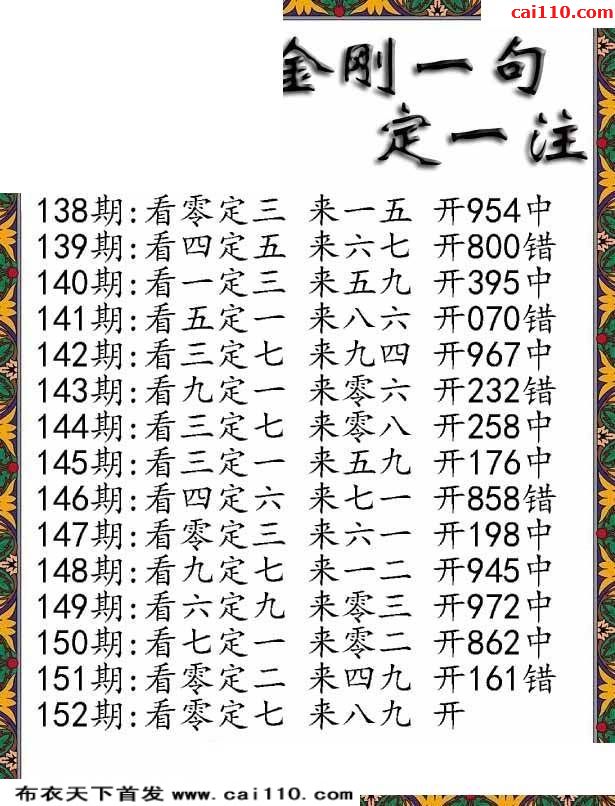 cai110.com
金刚一句
定一注
138期:看零定三 来一五 开954中
139期:看四定五 来六七 开800错
140期:看一定三 来五九 开395中
141期:看五定一 来八六 开070错
142期:看三定七 来九四 开967中
143期:看九定一 来零六 开232错
144期:看三定七 来零八 开258中
145期:看三定一 来五九 开176中
146期:看四定六 来七一 开858错
147期:看零定三 来六一 开198中
148期:看九定七 来一二 开945中
149期:看六定九 来零三 开972中
150期:看七定一 来零二 开862中
151期:看零定二 来四九 开161错
152期:看零定七 来八九 开
布衣天下首发 www.cai110.com